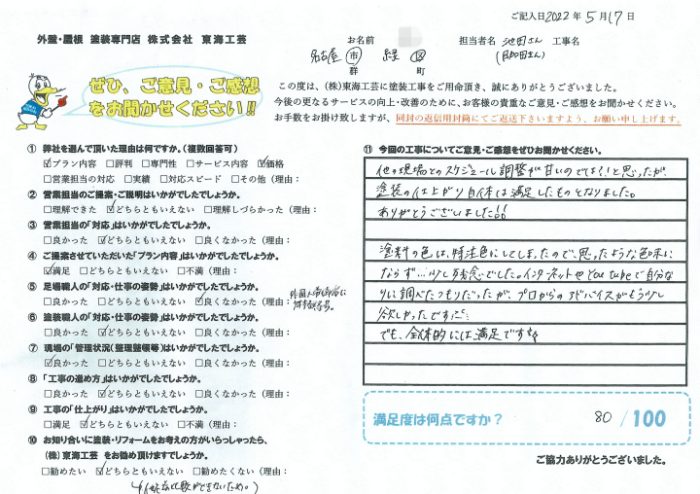 ご記入日2022年 5月17日
外壁・屋根 塗装専門店 株式会社 東海工芸
お名前
担当者名 池田さん 工事名
名古屋 市 緑 区
郡 町
ぜひ、ご意見・ご感想
をお聞かせください!!
この度は、(株)東海工芸に塗装工事をご用命頂き、誠にありがとうございました。
今後の更なるサービスの向上・改善のために、お客様の貴重なご意見・ご感想をお聞かせください。
お手数をお掛け致しますが、同封の返信用封筒にてご返送下さいますよう、お願い申し上げます。
① 弊社を選んで頂いた理由は何ですか。(複数回答可)
☑プラン内容 □評判 □専門性 □サービス内容 ☑価格
□営業担当の対応 □実績 □対応スピード □その他 (理由:
② 営業担当のご提案・ご説明はいかがでしたでしょうか。
□理解できた ☑どちらともいえない □理解しづらかった (理由:
③ 営業担当の「対応」はいかがでしたでしょうか。
□良かった ☑どちらともいえない □良くなかった (理由:
④ ご提案させていただいた「プラン内容」はいかがでしたでしょうか。
☑満足 □どちらともいえない □不満 (理由:
⑤ 足場職人の「対応・仕事の姿勢」はいかがでしたでしょうか。
□良かった □どちらともいえない ☑良くなかった (理由:
⑥ 塗装職人の「対応・仕事の姿勢」はいかがでしたでしょうか。
□良かった ☑どちらともいえない □良くなかった (理由:
⑦ 現場の「管理状況(整理整頓等)」はいかがでしたでしょうか。
☑良かった □どちらともいえない □良くなかった (理由:
⑧ 「工事の進め方」はいかがでしたでしょうか。
□良かった ☑どちらともいえない □良くなかった (理由:
⑨ 工事の「仕上がり」はいかがでしたでしょうか。
□満足 ☑どちらともいえない □不満 (理由:
⑩ お知り合いに塗装・リフォームをお考えの方がいらっしゃったら、
(株)東海工芸 をお勧め頂けますでしょうか。
□勧めたい ☑どちらともいえない □勧めたくない (理由:
比較ができないため。)
⑪ 今回の工事についてご意見・ご感想をぜひお聞かせください。
他の現場とのスケジュール調整が甘いのでは!?と思ったが、
塗装の仕上がり自体は満足したものとなりました。
ありがとうございました!!
塗料の色は、特注色にしてしまったので、思ったような色味に
ならず…少し残念でした。インターネットやYou tubeで自分な
りに調べたつもりだったが、プロからのアドバイスがもう少し
欲しかったです
でも、全体的には満足です
満足度は何点ですか? 80 /100
ご協力ありがとうございました。